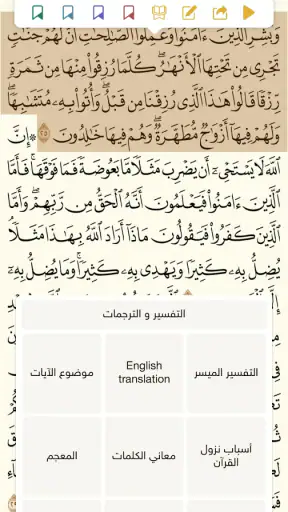 وَبَشِّرِ ٱلَّذِينَ ءَامَنُوا۟ وَعَمِلُوا۟ ٱلصَّٰلِحَٰتِ أَنَّ لَهُمْ جَنَّٰتٍ
تَجْرِى مِن تَحْتِهَا ٱلْأَنْهَٰرُ ۖ كُلَّمَا رُزِقُوا۟ مِنْهَا مِن ثَمَرَةٍ
رِّزْقًا ۙ قَالُوا۟ هَٰذَا ٱلَّذِى رُزِقْنَا مِن قَبْلُ ۖ وَأُتُوا۟ بِهِۦ مُتَشَٰبِهًا ۖ
وَلَهُمْ فِيهَآ أَزْوَٰجٌ مُّطَهَّرَةٌ ۖ وَهُمْ فِيهَا خَٰلِدُونَ ٢٥ ۞ إِنَّ
ٱللَّهَ لَا يَسْتَحْىِۦٓ أَن يَضْرِبَ مَثَلًا مَّا بَعُوضَةً فَمَا فَوْقَهَا ۚ فَأَمَّا
ٱلَّذِينَ ءَامَنُوا۟ فَيَعْلَمُونَ أَنَّهُ ٱلْحَقُّ مِن رَّبِّهِمْ ۖ وَأَمَّا
ٱلَّذِينَ كَفَرُوا۟ فَيَقُولُونَ مَاذَآ أَرَادَ ٱللَّهُ بِهَٰذَا مَثَلًا ۘ
يُضِلُّ بِهِۦ كَثِيرًا وَيَهْدِى بِهِۦ كَثِيرًا ۚ وَمَا يُضِلُّ بِهِۦٓ
إِلَّا
التفسير و الترجمات
التفسير الميسر
English translation
موضوع الآيات
أسباب نزول القرآن
معاني الكلمات
المعجم